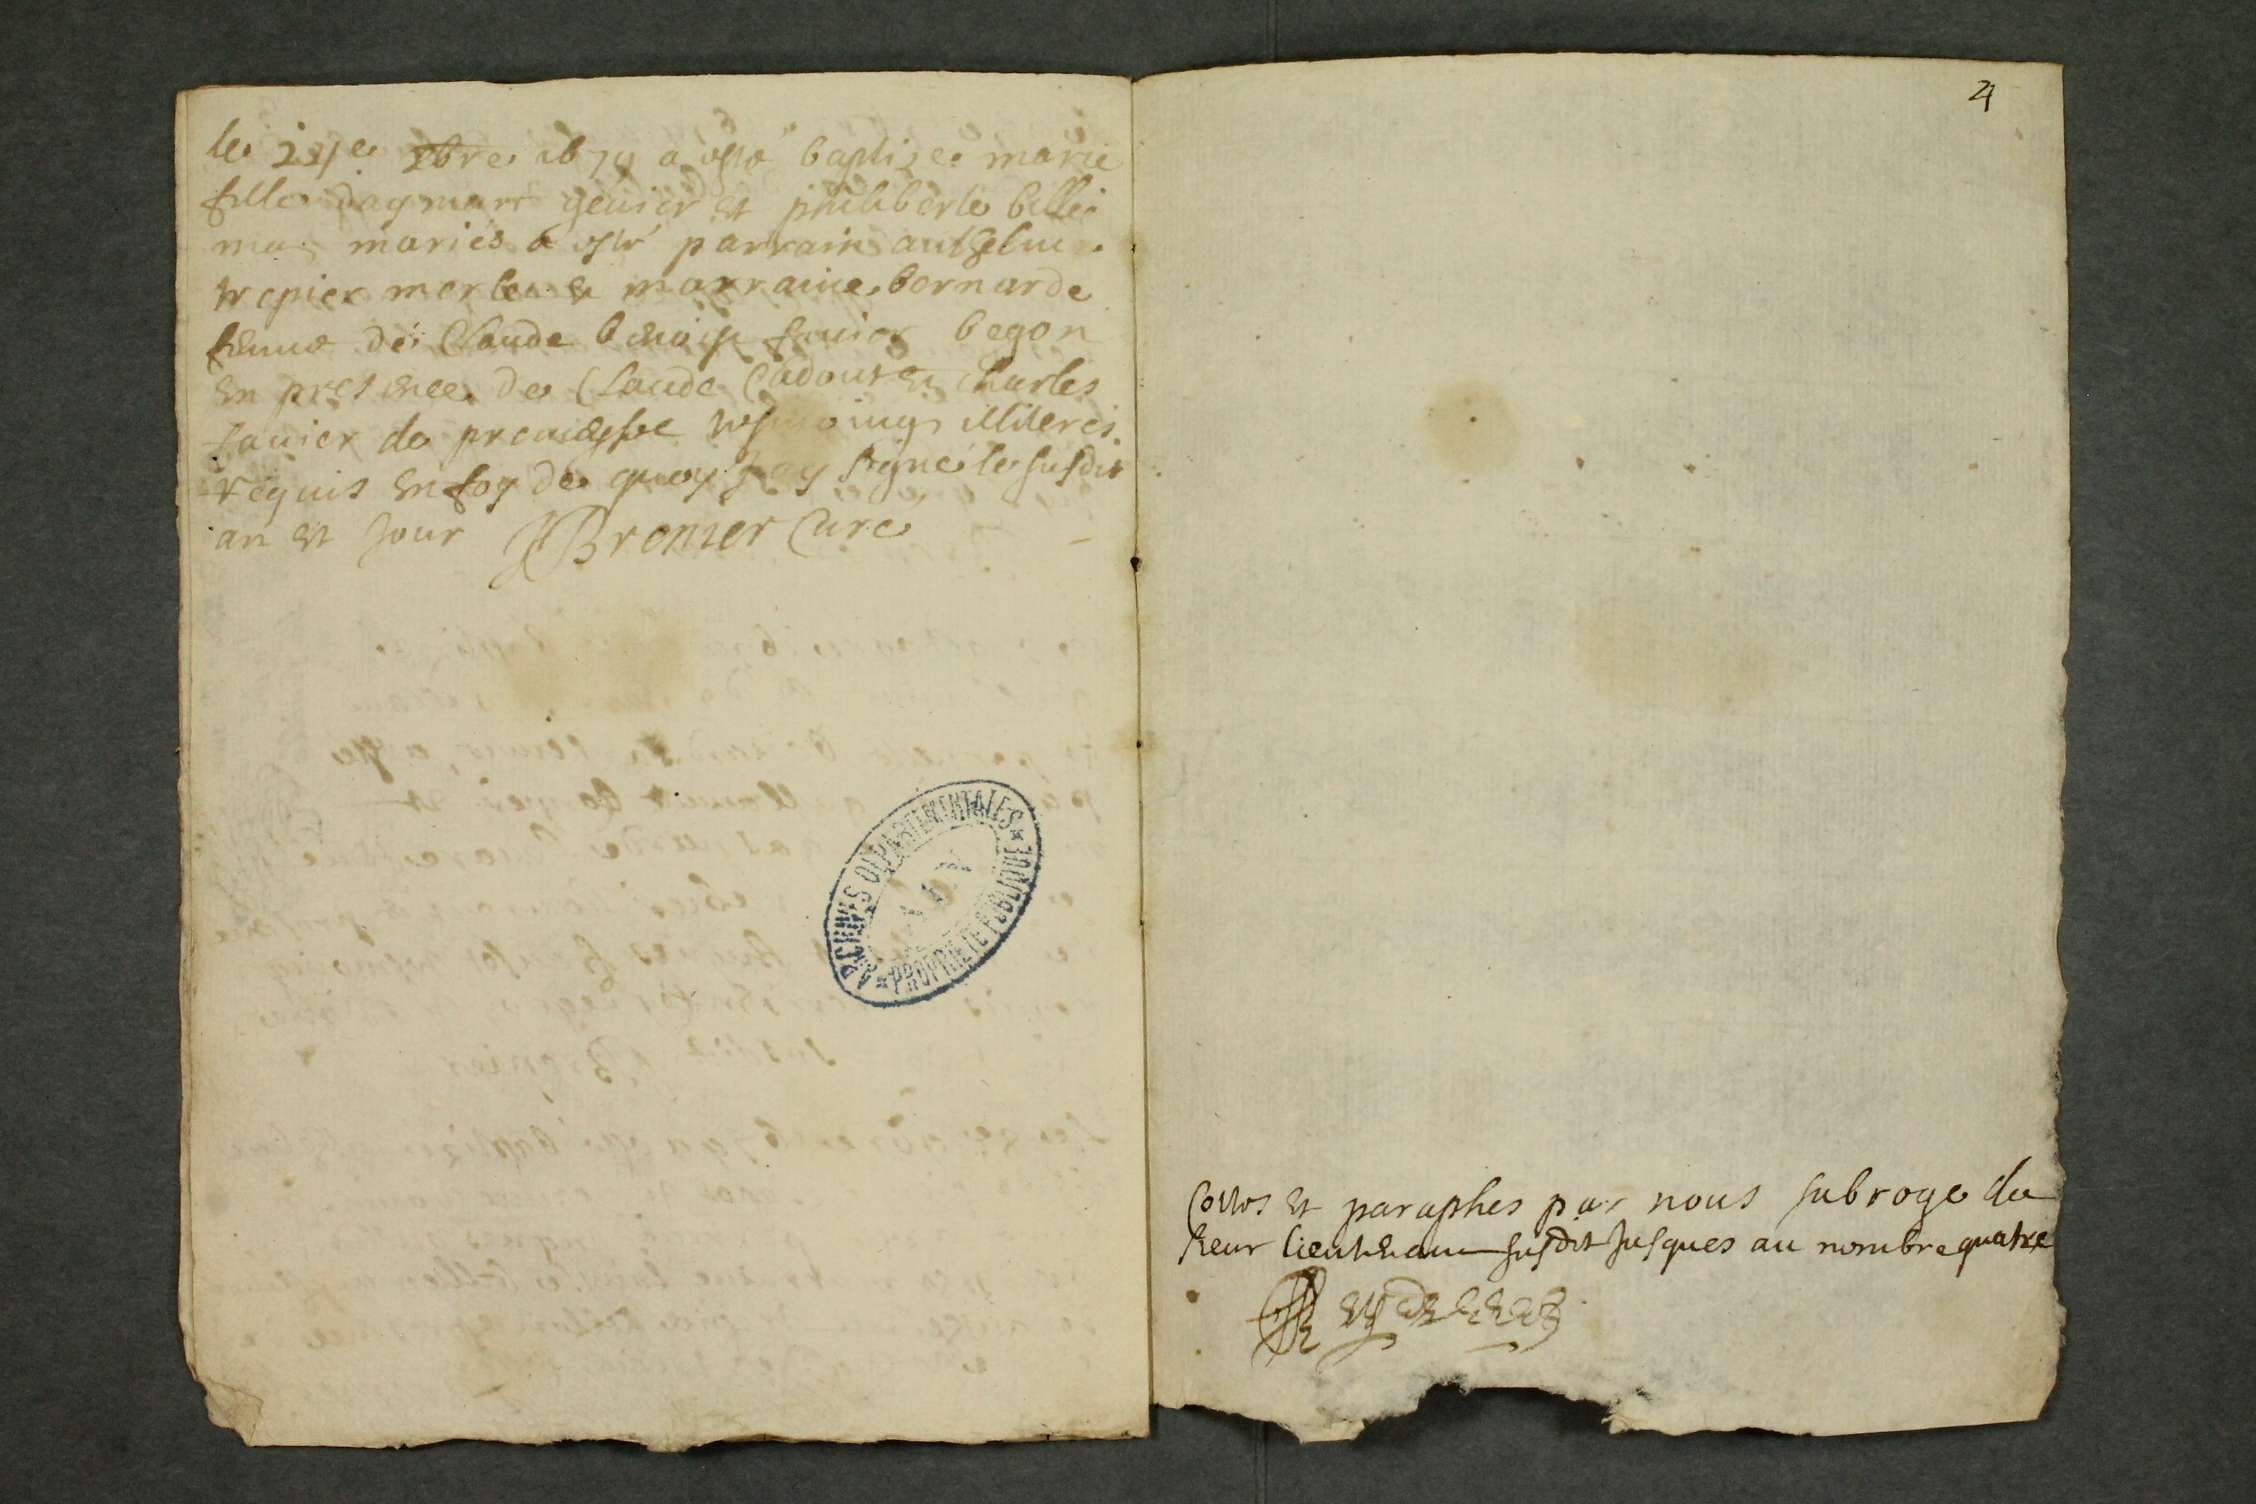 le xbre 1679 a esté baptisée marie
fille daymart genier et philiberte billie
mas mariés a esté parrain anthelme
trepier merle et marraine bernarde
femme de Claude benoist favier begon
en presence de Claude Cadout et Charles
favier de premeyssel tesmoings illiteres
requis en foy de quoy Jay signé le susdit
an et Jour JBronier Curé
ARCHIVES DEPARTEMENTALES
AIN
PROPRIETE PUBLIQUE
4
Cottes et paraphes par nous subroge du
sieur lieutenant susdit Jusques au nombre quatre